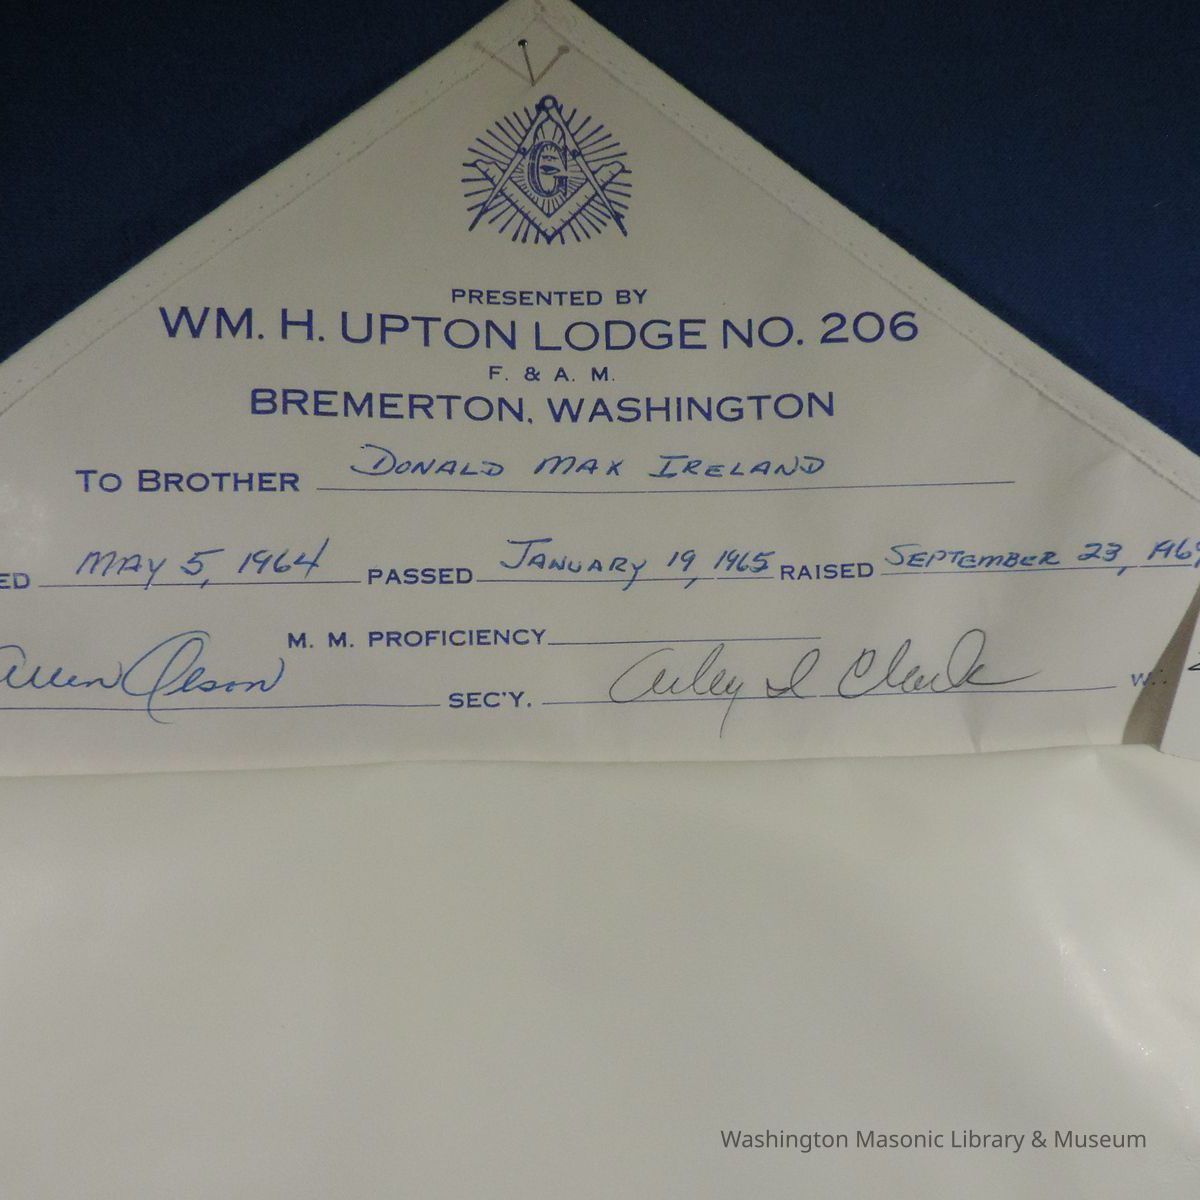 G
PRESENTED BY
WM. H. UPTON LODGE NO. 206
F. & A. M.
BREMERTON, WASHINGTON
TO BROTHER DONALD MAX IRELAND
ED MAY 5, 1964 PASSED JANUARY 19, 1965 RAISED SEPTEMBER 23, 196
M. M. PROFICIENCY
Olson SEC'Y. Arley I Clark W∴
Washington Masonic Library & Museum